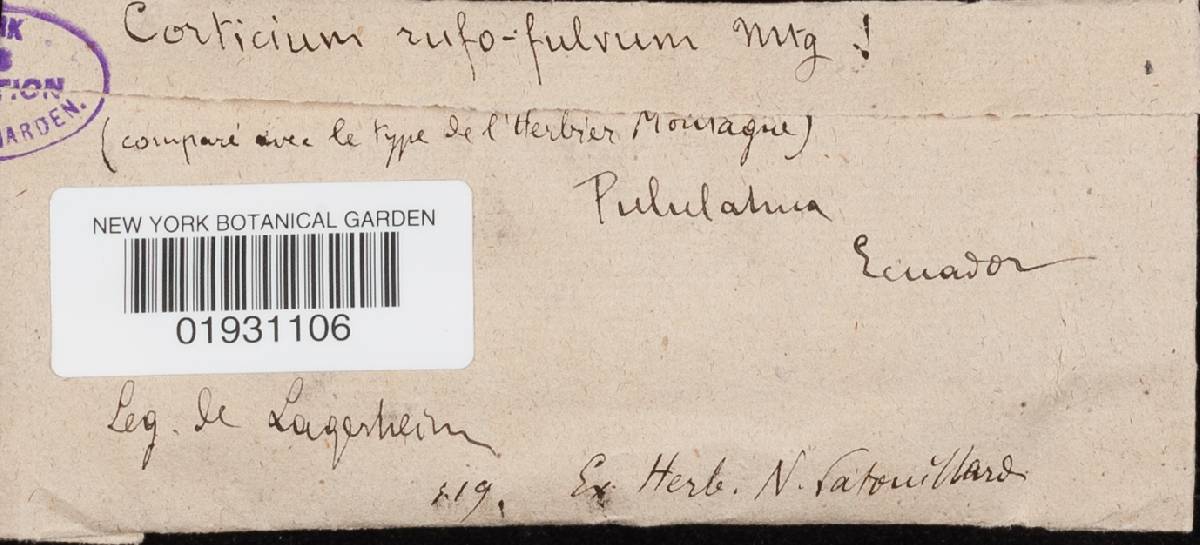 Corticium rufo-fulvum Mtg !
(comparé avec le type de l'Herbier Montagne)
Pululahua
Ecuador
TION
ARDEN.
NEW YORK BOTANICAL GARDEN
01931106
Leg. de Lagerheim
Ex Herb. N. Patouillard